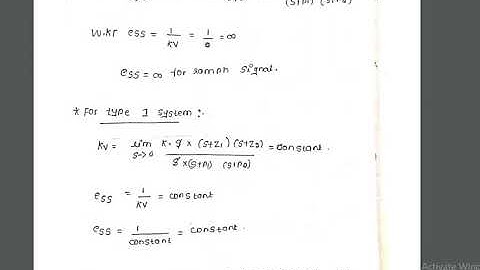 (s+p1) (s+p2)
W.k.t ess = 1/kv = 1/0 = ∞
ess = ∞ for ramp signal.
* For type 1 system :-
kv = lim s→0 k · s x (s+z1) (s+z2) / s x (s+p1) (s+p2) = constant .
ess = 1/kv = constant
ess = 1/constant = constant .
Activate Wind